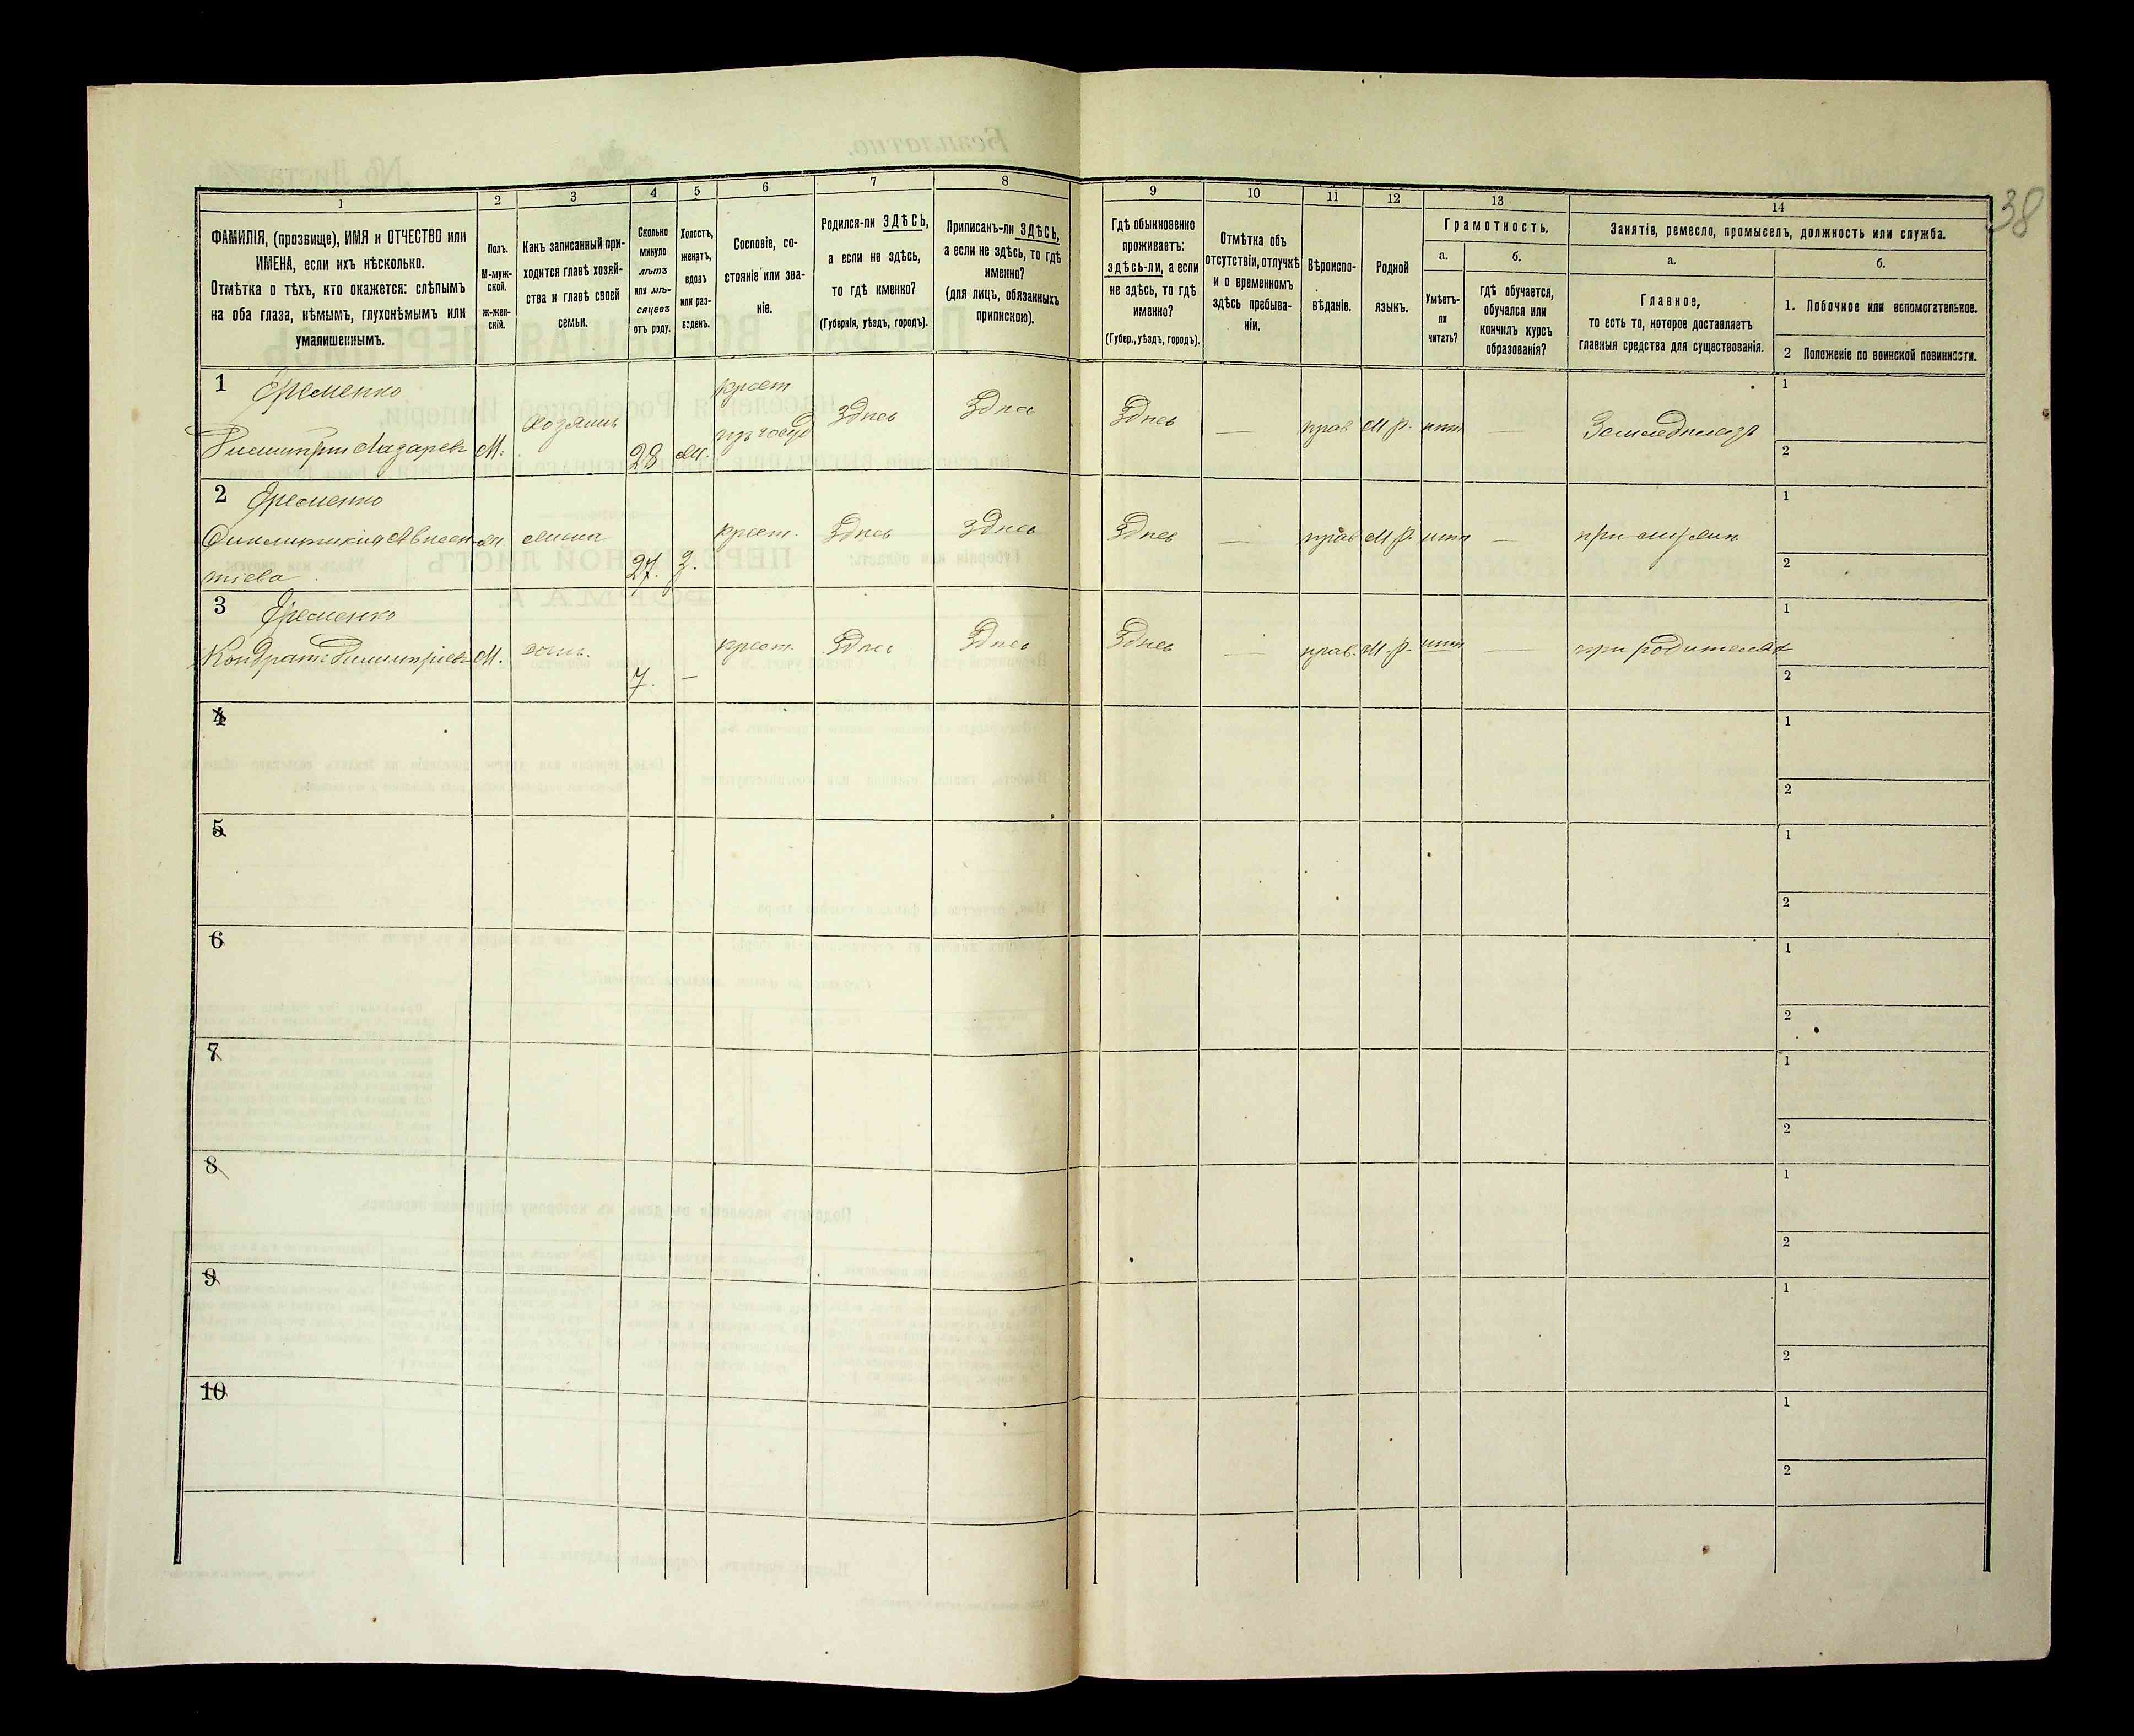 38
1
2
3
4
5
6
7
8
9
10
11
12
13
14
ФАМИЛІЯ, (прозвище), ИМЯ и ОТЧЕСТВО или
ИМЕНА, если ихъ нѣсколько.
Отмѣтка о тѣхъ, кто окажется: слѣпымъ
на оба глаза, нѣмымъ, глухонѣмымъ или
умалишеннымъ.
Полъ.
М-муж-
ской.
Ж-жен-
скій.
Какъ записанный при-
ходится главѣ хозяй-
ства и главѣ своей
семьи.
Сколько
минуло
лѣтъ
или мѣ-
сяцевъ
отъ роду.
Холостъ,
женатъ,
вдовъ
или раз-
веденъ.
Сословіе, со-
стояніе или зва-
ніе.
Родился-ли ЗДѢСЬ,
а если не здѣсь,
то гдѣ именно?
(Губернія, уѣздъ, городъ).
Приписанъ-ли ЗДѢСЬ,
а если не здѣсь, то гдѣ
именно?
(для лицъ, обязанныхъ
припискою).
Гдѣ обыкновенно
проживаетъ:
здѣсь-ли, а если
не здѣсь, то гдѣ
именно?
(Губер., уѣздъ, городъ).
Отмѣтка объ
отсутствіи, отлучкѣ
и о временномъ
здѣсь пребыва-
ніи.
Вѣроиспо-
вѣданіе.
Родной
языкъ.
Грамотность.
а.
Умѣетъ-
ли
читать?
б.
гдѣ обучается,
обучался или
кончилъ курсъ
образованія?
Занятіе, ремесло, промыселъ, должность или служба.
а.
Главное,
то есть то, которое доставляетъ
главныя средства для существованія.
б.
1. Побочное или вспомогательное.
2 Положеніе по воинской повинности.
1 Еременко
Димитрій Лазаревъ М. хозяинъ 28
крест.
Здѣсь Здѣсь Здѣсь — прав. М.р. нѣтъ — Земледѣлецъ
1
2
2 Еременко
жена 27. З. крест. Здѣсь Здѣсь Здѣсь — прав. М.р. нѣтъ — при мужѣ
1
2
3 Еременко
Кондратъ Димитріевъ М. 7. — крест. Здѣсь Здѣсь Здѣсь — прав. М.р. нѣтъ — при родителяхъ
1
2
4
1
2
5
1
2
6
1
2
7
1
2
8
1
2
9
1
2
10
1
2